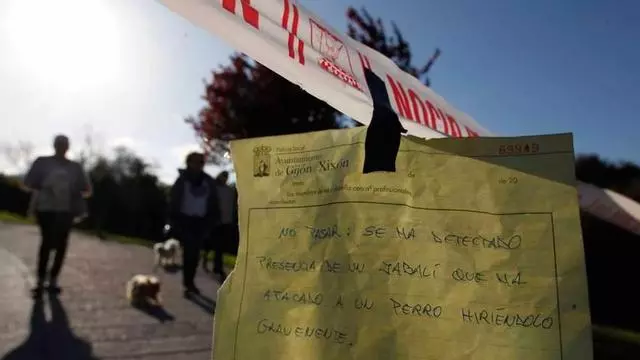 NOCIO
69949
Policía local
Ayuntamiento
de Gijón Xixón
de 20
NO PASAR: SE HA DETECTADO
PRESENCIA DE UN JABALÍ QUE HA
ATACADO A UN PERRO HIRIÉNDOLO
GRAVEMENTE.